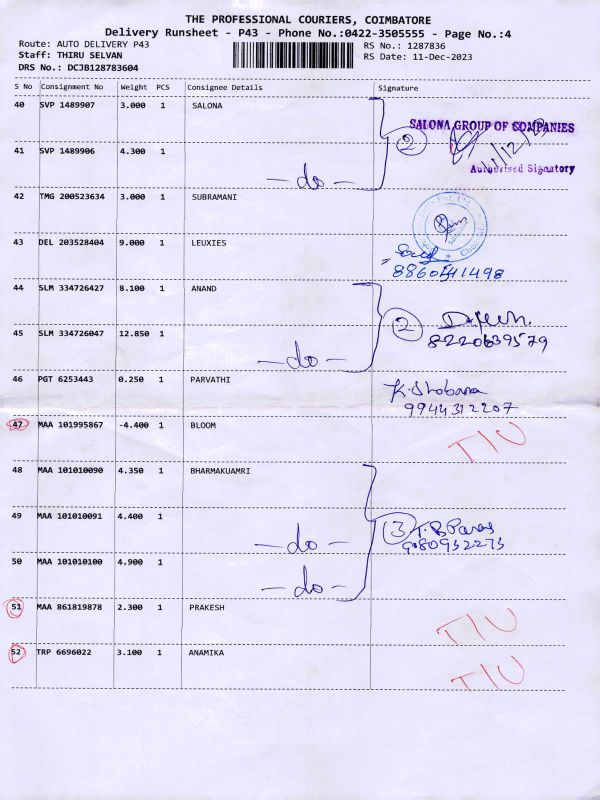 THE PROFESSIONAL COURIERS, COIMBATORE
Delivery Runsheet - P43 - Phone No.:0422-3505555 - Page No.:4
Route: AUTO DELIVERY P43 RS No.: 1287836
Staff: THIRU SELVAN RS Date: 11-Dec-2023
DRS No.: DCJB128783604
S No Consignment No Weight PCS Consignee Details Signature
40 SVP 1489907 3.000 1 SALONA
SALONA GROUP OF COMPANIES
2 11/12/23
41 SVP 1489906 4.300 1
Authorised Signatory
-do-
42 TMG 200523634 3.000 1 SUBRAMANI
43 DEL 203528404 9.000 1 LEUXIES
44 SLM 334726427 8.100 1 ANAND
2
45 SLM 334726047 12.850 1 8220639579
-do-
46 PGT 6253443 0.250 1 PARVATHI K. Shobana
9944312207
47 MAA 101995867 -4.400 1 BLOOM T/U
48 MAA 101010090 4.350 1 BHARMAKUAMRI
49 MAA 101010091 4.400 1 -do- 3
50 MAA 101010100 4.900 1 -do-
51 MAA 861819878 2.300 1 PRAKESH T/U
52 TRP 6696022 3.100 1 ANAMIKA T/U